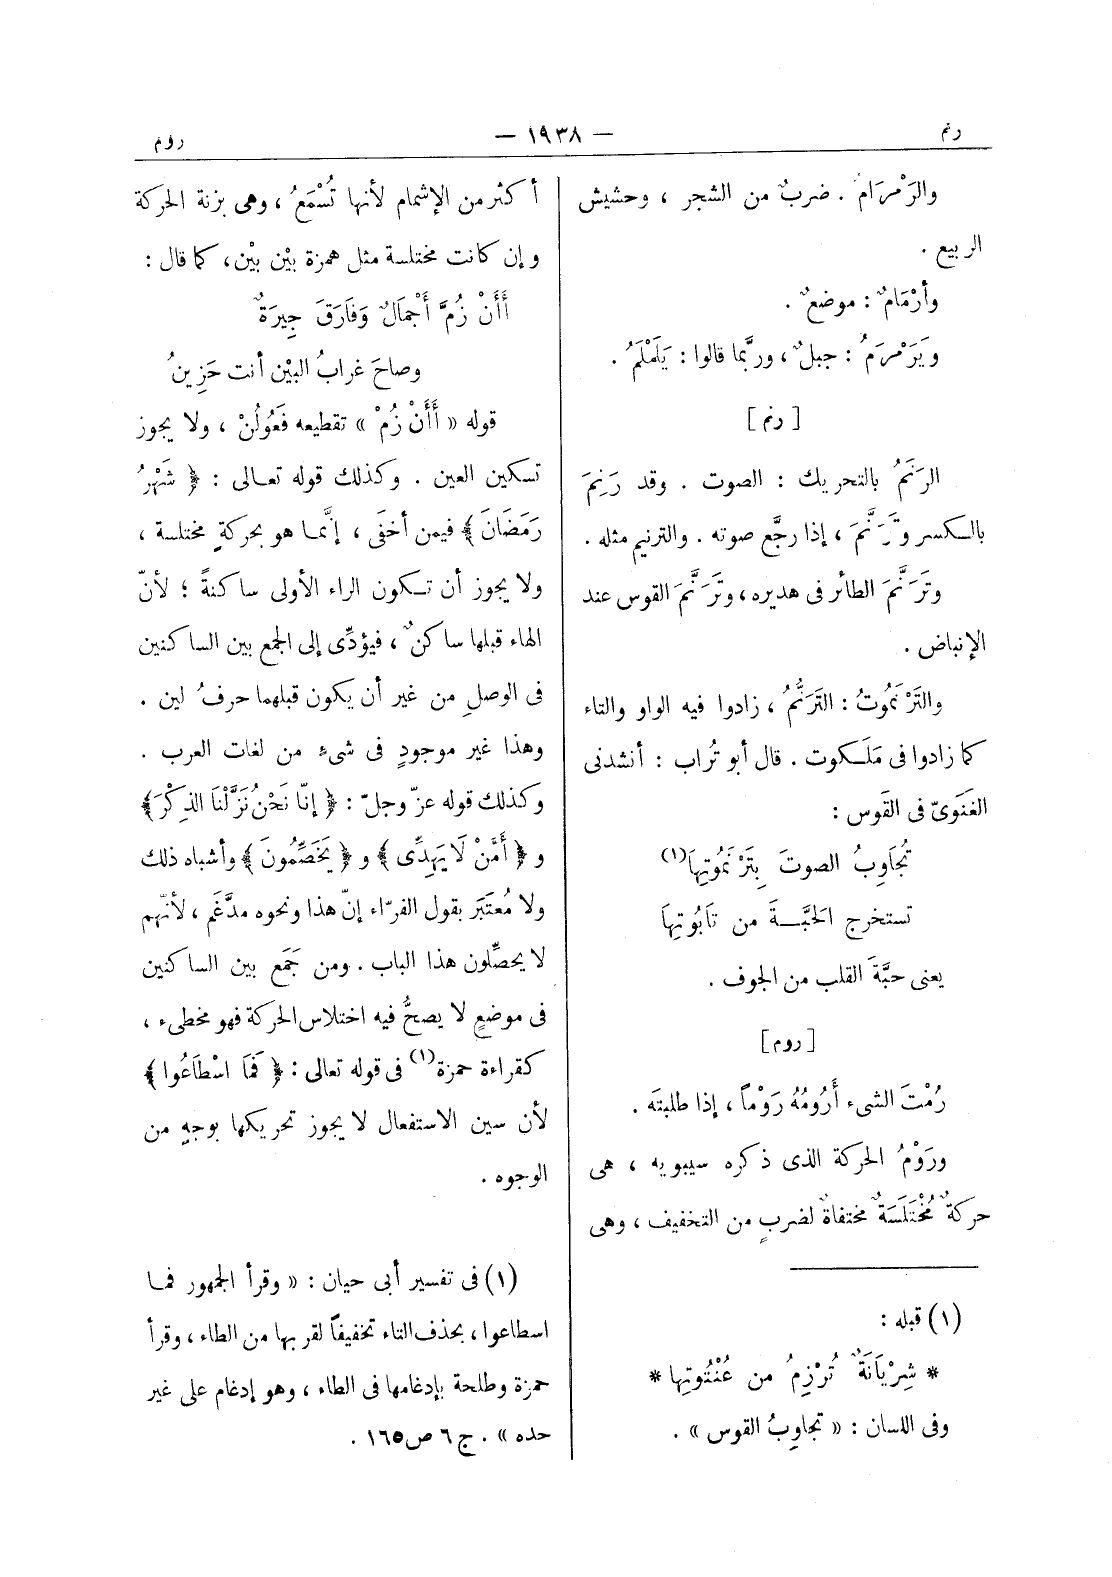 رنم
— ١٩٣٨ —
روم
والرَمْرَامُ . ضربٌ من الشجر ، وحشيش
الربيع .
وأرْمَامٌ : موضعٌ .
ويَرَمْرَمُ : جبلٌ ، وربَّما قالوا : يَلَمْلَمُ .
[ رنم ]
الرَنَمُ بالتحريك : الصوت . وقد رَنِمَ
بالكسر وتَرَنَّمَ ، إذا رجَّع صوته . والترنيم مثله .
وتَرَنَّمَ الطائر فى هديره ، وتَرَنَّمَ القوس عند
الإنباض .
والتَرْنَمُوتُ : التَرَنُّمُ ، زادوا فيه الواو والتاء
كما زادوا فى مَلَكوت . قال أبو تُراب : أنشدنى
الغَنَوىّ فى القَوس :
تُجَاوِبُ الصوتَ بِتَرْنَمُوتِهَا (١)
تستخرج الحَبَّةَ من تَابُوتِهَا
يعنى حبَّةَ القلب من الجوف .
[ روم ]
رُمْتَ الشىء أَرُومُهُ رَوْماً ، إذا طلبتَه .
ورَوْمُ الحركة الذى ذكره سيبويه ، هى
حركةٌ مُخْتَلَسَةٌ مختفاةٌ لضربٍ من التخفيف ، وهى
(١) قبله :
* شِرْيَانَةٌ تُرْزِمُ من عُنْتُوتِها *
وفى اللسان : « تجاوِبُ القوس » .
أكثر من الإشمام لأنها تُسْمَعُ ، وهى بزنة الحركة
وإن كانت مختلسة مثل همزة بيْن بيْن ، كما قال :
أَأَنْ زُمَّ أَجْمَالٌ وَفَارَقَ جِيرَةٌ
وصاحَ غرابُ البيْن أنت حَزِينُ
قوله « أَأَنْ زُمْ » تقطيعه فَعُولُنْ ، ولا يجوز
تسكين العين . وكذلك قوله تعالى : ﴿ شَهْرُ
رَمَضَانَ ﴾ فيمن أخفَى ، إنَّما هو بحركةٍ مختلسة ،
ولا يجوز أن تكون الراء الأولى ساكنةً ؛ لأنّ
الهاء قبلها ساكنٌ ، فيؤدِّى إلى الجمع بين الساكنين
فى الوصلِ من غير أن يكون قبلهما حرفُ لين .
وهذا غير موجودٍ فى شىءٍ من لغات العرب .
وكذلك قوله عزّ وجلّ : ﴿ إنّا نَحْنُ نَزَّلْنَا الذِكْرَ ﴾
و ﴿ أَمَّنْ لَا يَهِدِّى ﴾ و ﴿ يَخَصِّمُونَ ﴾ وأشباه ذلك
ولا مُعتَبَر بقول الفرّاء إنّ هذا ونحوه مدَّغَم ، لأنّهم
لا يحصِّلون هذا الباب . ومن جَمَع بين الساكنين
فى موضعٍ لا يصحُّ فيه اختلاس الحركة فهو مخطىء ،
كقراءة حمزة (١) فى قوله تعالى : ﴿ فَمَا اسْطَاعُوا ﴾
لأن سين الاستفعال لا يجوز تحريكها بوجهٍ من
الوجوه .
(١) فى تفسير أبى حيان : « وقرأ الجمهور فما
اسطاعوا ، بحذف التاء تخفيفاً لقربها من الطاء ، وقرأ
حمزة وطلحة بإدغامها فى الطاء ، وهو إدغام على غير
حده » . ج ٦ ص ١٦٥ .